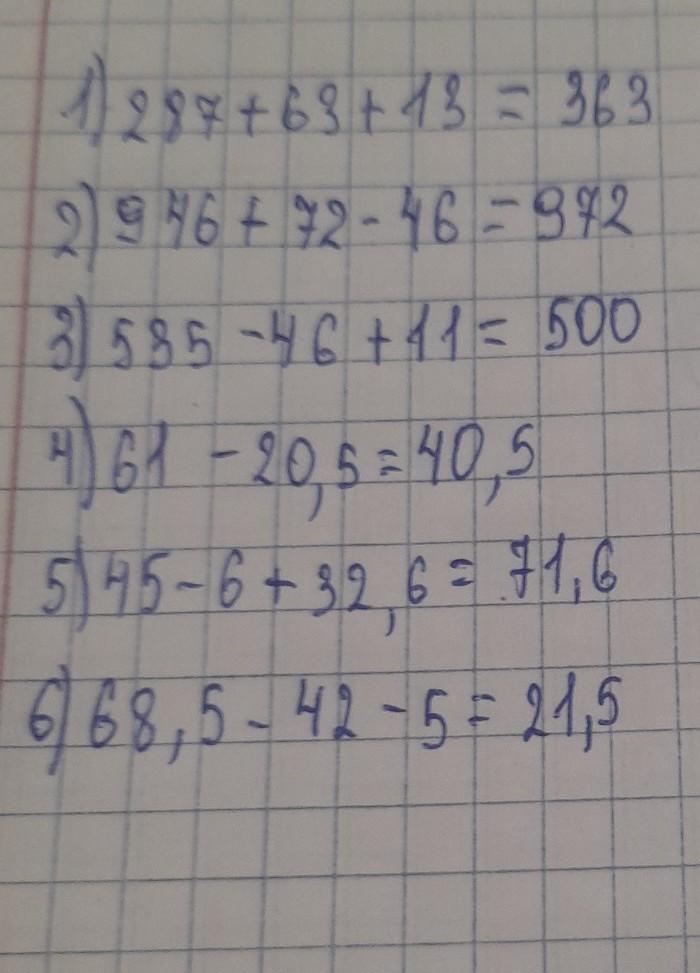 1) 287 + 63 + 13 = 363
2) 946 + 72 - 46 = 972
3) 535 - 46 + 11 = 500
4) 61 - 20,5 = 40,5
5) 45 - 6 + 32,6 = 71,6
6) 68,5 - 42 - 5 = 21,5